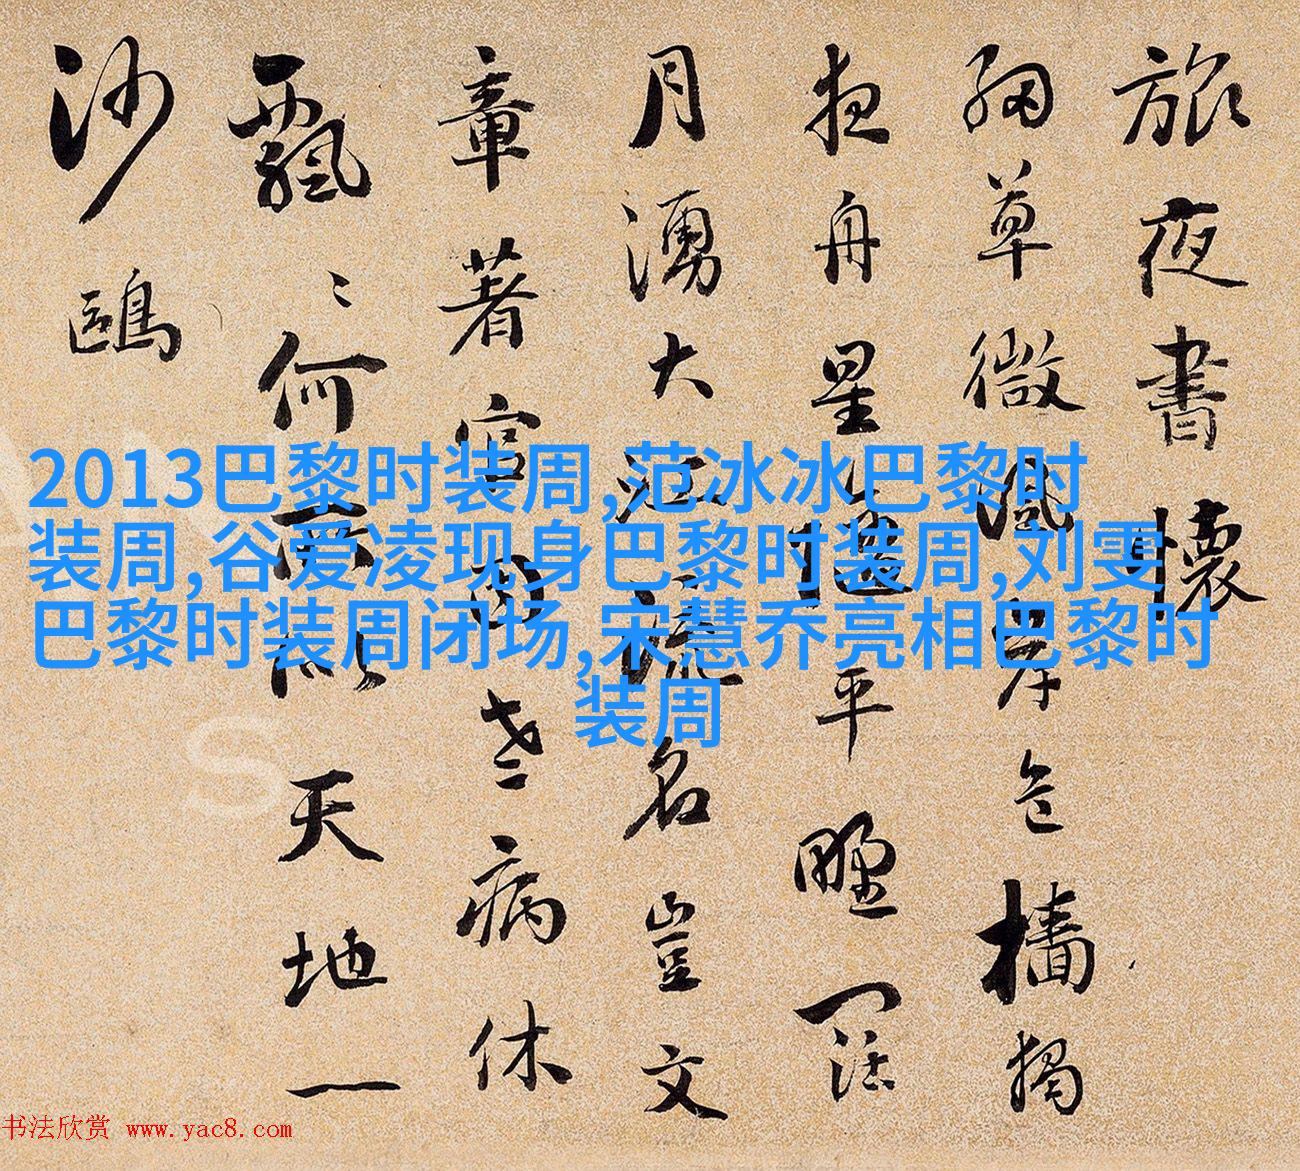 旅夜書懷
細草微風岸危檣獨
夜舟星隨平野闊
月湧大江流名豈文
章著官因老病休
飄〻何所似天地一
沙鷗
2013巴黎时装周,范冰冰巴黎时
装周,谷爱凌现身巴黎时装周,刘雯
巴黎时装周闭场,宋慧乔亮相巴黎时
装周
书法欣赏 www.yac8.com